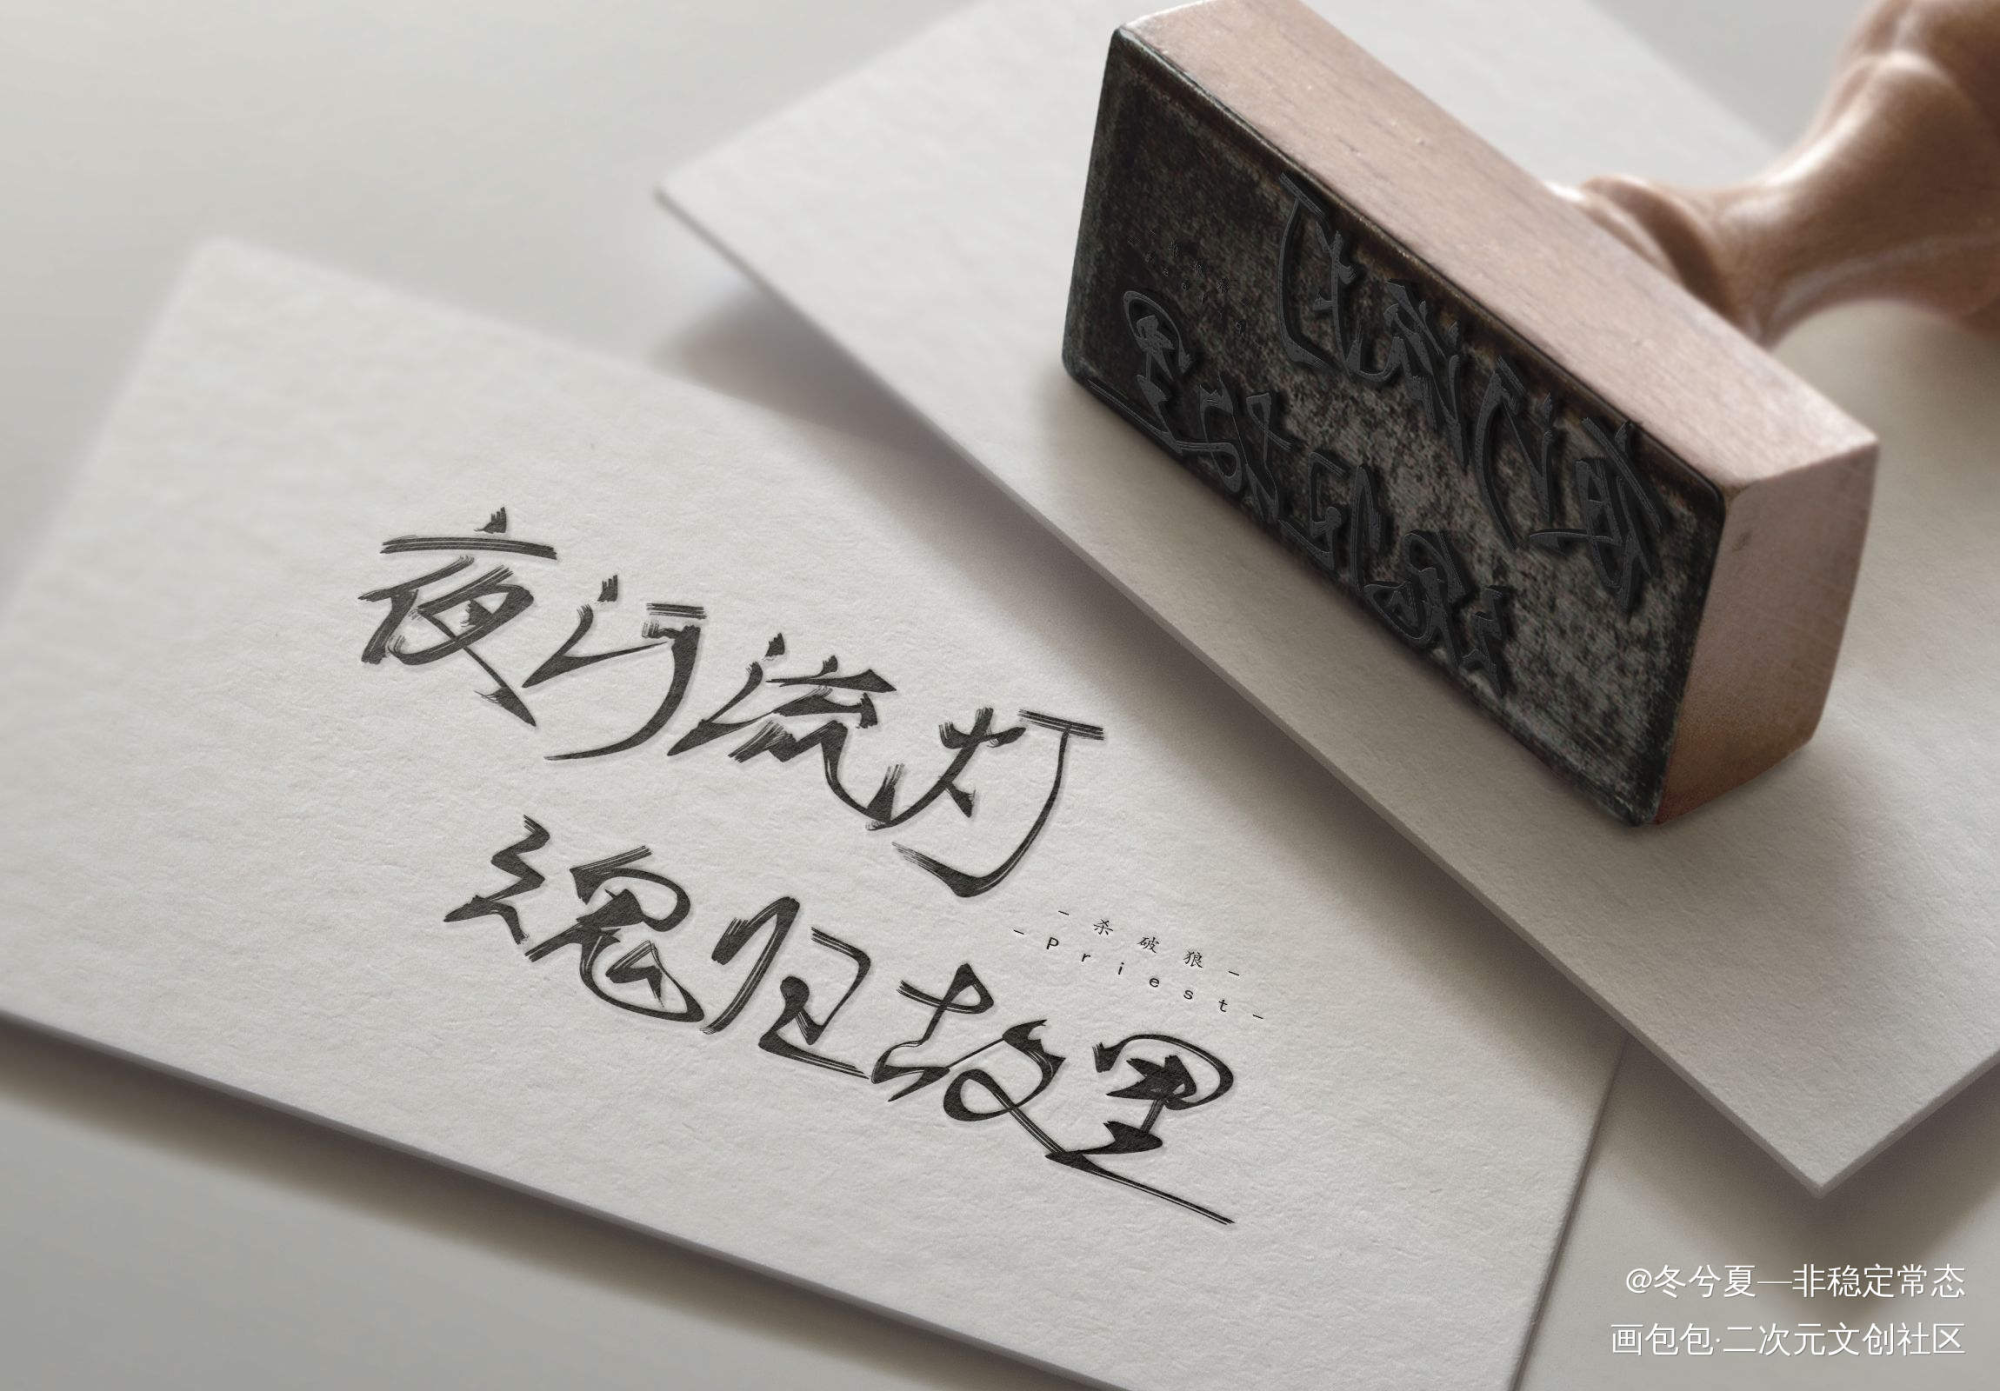 夜河流灯
魂归故里
- 杀破狼 -
- Priest -
@冬兮夏—非稳定常态
画包包·二次元文创社区